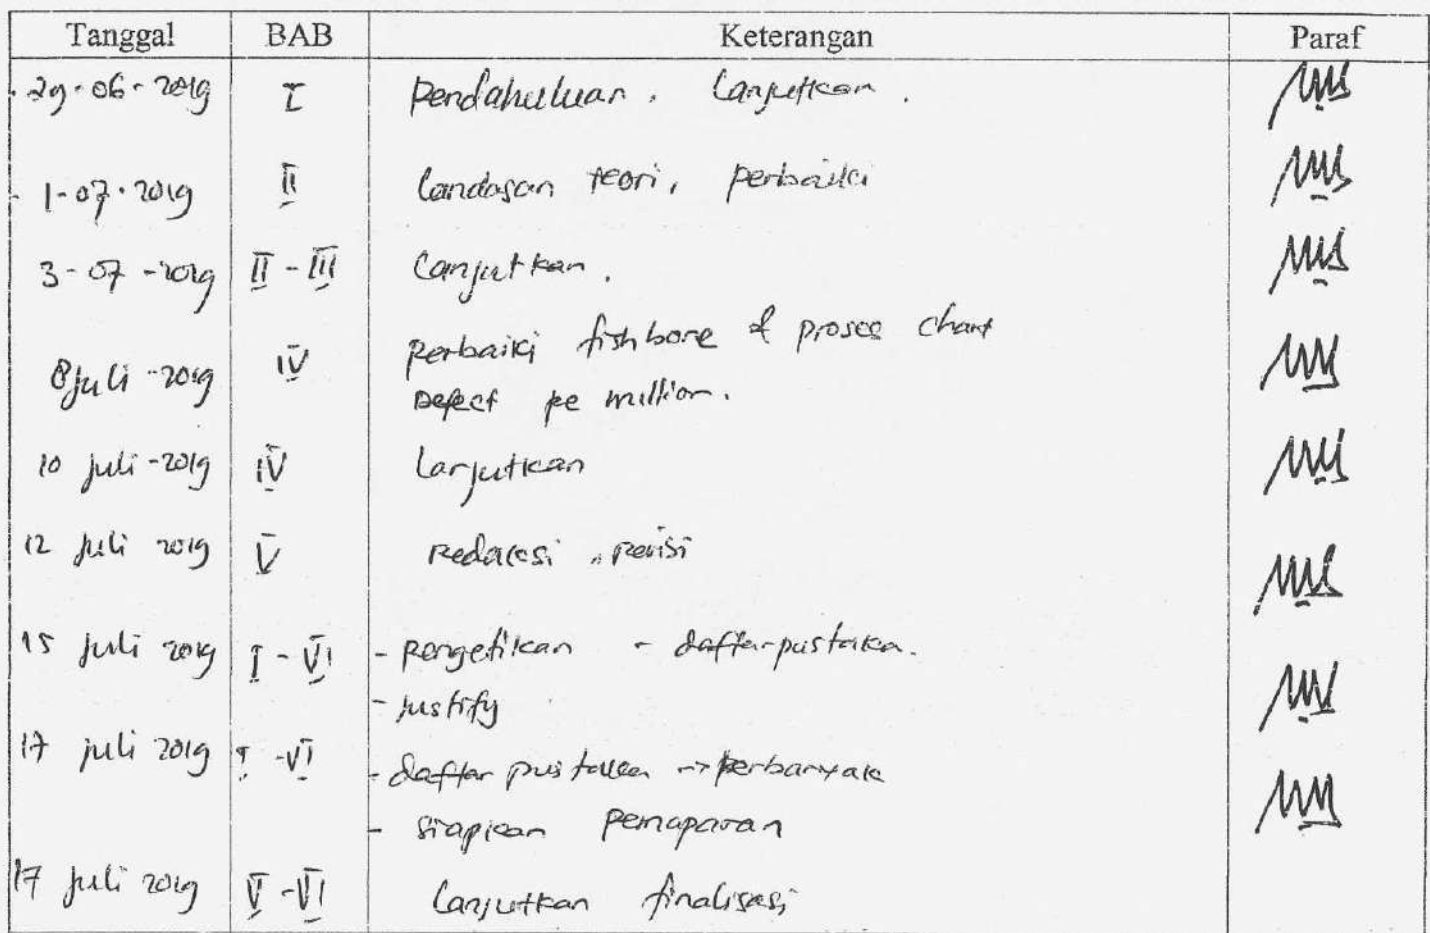 Tanggal BAB Keterangan Paraf
29-06-2019 I Pendahuluan, lanjutkan.
1-07-2019 II landasan teori, perbaiki
3-07-2019 II - III lanjutkan.
8 juli - 2019 IV Perbaiki fishbone & proses chart
Defect pe million.
10 juli - 2019 IV lanjutkan
12 juli 2019 V Redaksi, revisi
15 juli 2019 I - VI - pengetikan - daftar pustaka.
- justify
17 juli 2019 I - VI - daftar pustaka → perbanyak
- siapkan pemaparan
17 juli 2019 V - VI lanjutkan finalisasi